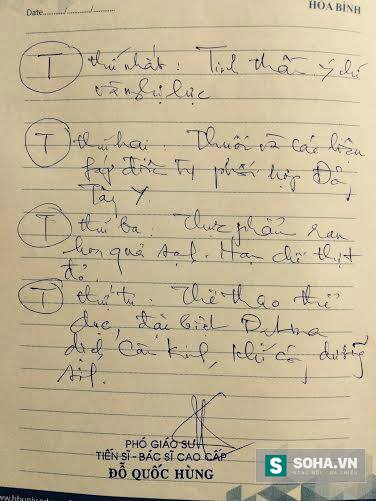 Date
HÒA BÌNH
T thứ nhất: Tinh thần ý chí
và nghị lực
T thứ hai: Thuốc và các biện
fáp điều trị phối hợp Đông
Tây Y.
T thứ ba: Thực phẩm rau
hoa quả sạch. Hạn chế thịt
đỏ
T thứ tư: Thể thao thể
dục, đặc biệt
dịch Cân Kinh, khí công dưỡng
sinh.
PHÓ GIÁO SƯ
TIẾN SĨ - BÁC SĨ CAO CẤP
ĐỖ QUỐC HÙNG
S SOHA.VN